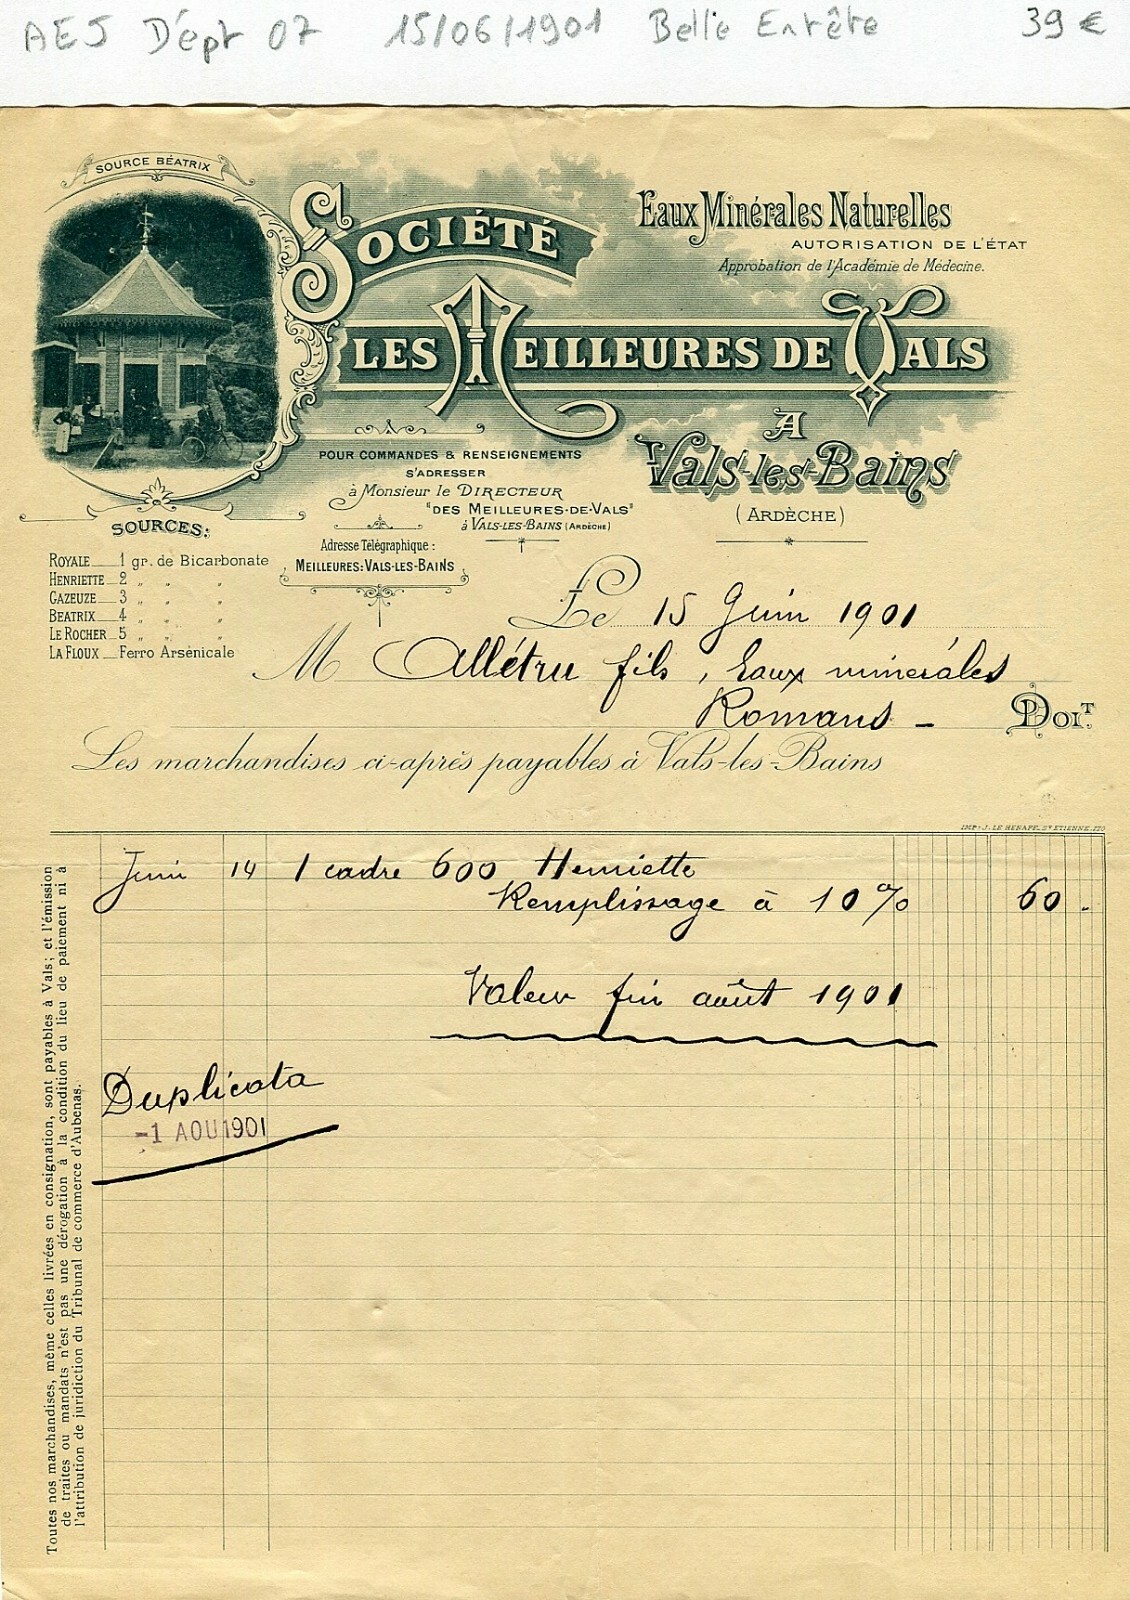 AEJ Dépt 07 15/06/1901 Belle Entrête 39 €
SOURCE BÉATRIX
SOCIÉTÉ
LES MEILLEURES DE VALS
Eaux Minérales Naturelles
AUTORISATION DE L'ÉTAT
Approbation de l'Académie de Médecine.
A
Vals-les-Bains
(ARDÈCHE)
POUR COMMANDES & RENSEIGNEMENTS
S'ADRESSER
à Monsieur le DIRECTEUR
"DES MEILLEURES-DE-VALS"
à VALS-LES-BAINS (ARDÈCHE)
Adresse Télégraphique :
MEILLEURES:VALS-LES-BAINS
SOURCES:
ROYALE 1 gr. de Bicarbonate
HENRIETTE 2 " " "
GAZEUZE 3 " " "
BEATRIX 4 " " "
LE ROCHER 5 " " "
LA FLOUX Ferro Arsénicale
Le 15 Juin 1901
M Allétru fils, Eaux minérales
Romans - DOIT
Les marchandises ci-après payables à Vals-les-Bains
IMP. J. LE HENAFF. ST ETIENNE.
Juin 14 1 cadre 600 Henriette
Remplissage à 10% 60 .
Valeur fin août 1901
Duplicata
-1 AOU 1901
Toutes nos marchandises, même celles livrées en consignation, sont payables à Vals; et l'émission
de traites ou mandats n'est pas une dérogation à la condition du lieu de paiement ni à
l'attribution de juridiction du Tribunal de commerce d'Aubenas.